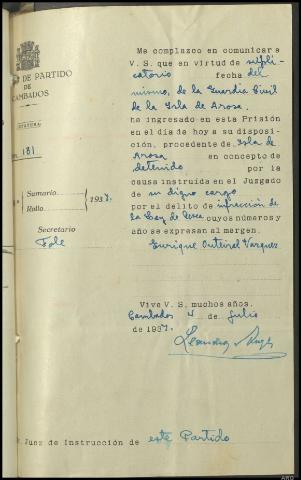 Me complazco en comunicar a
V. S. que en virtud de supli-
catorio fecha del
mismo, de la Guardia Civil
de la Isla de Arosa,
ha ingresado en esta Prisión
en el día de hoy a su disposi-
ción, procedente de Isla de
Arosa en concepto de
detenido por la
causa instruida en el Juzgado
de su digno cargo
por el delito de infracción de
la Ley de Pesca cuyos números y
año se expresan al margen.
Enrique Outeiral Vazquez
DE PARTIDO
DE
CAMBADOS
181
Sumario
Rollo
1937.
Secretario
Fole
Viva V. S. muchos años.
Cambados 4 de Julio
de 1937.
Juez de Instrucción de este Partido